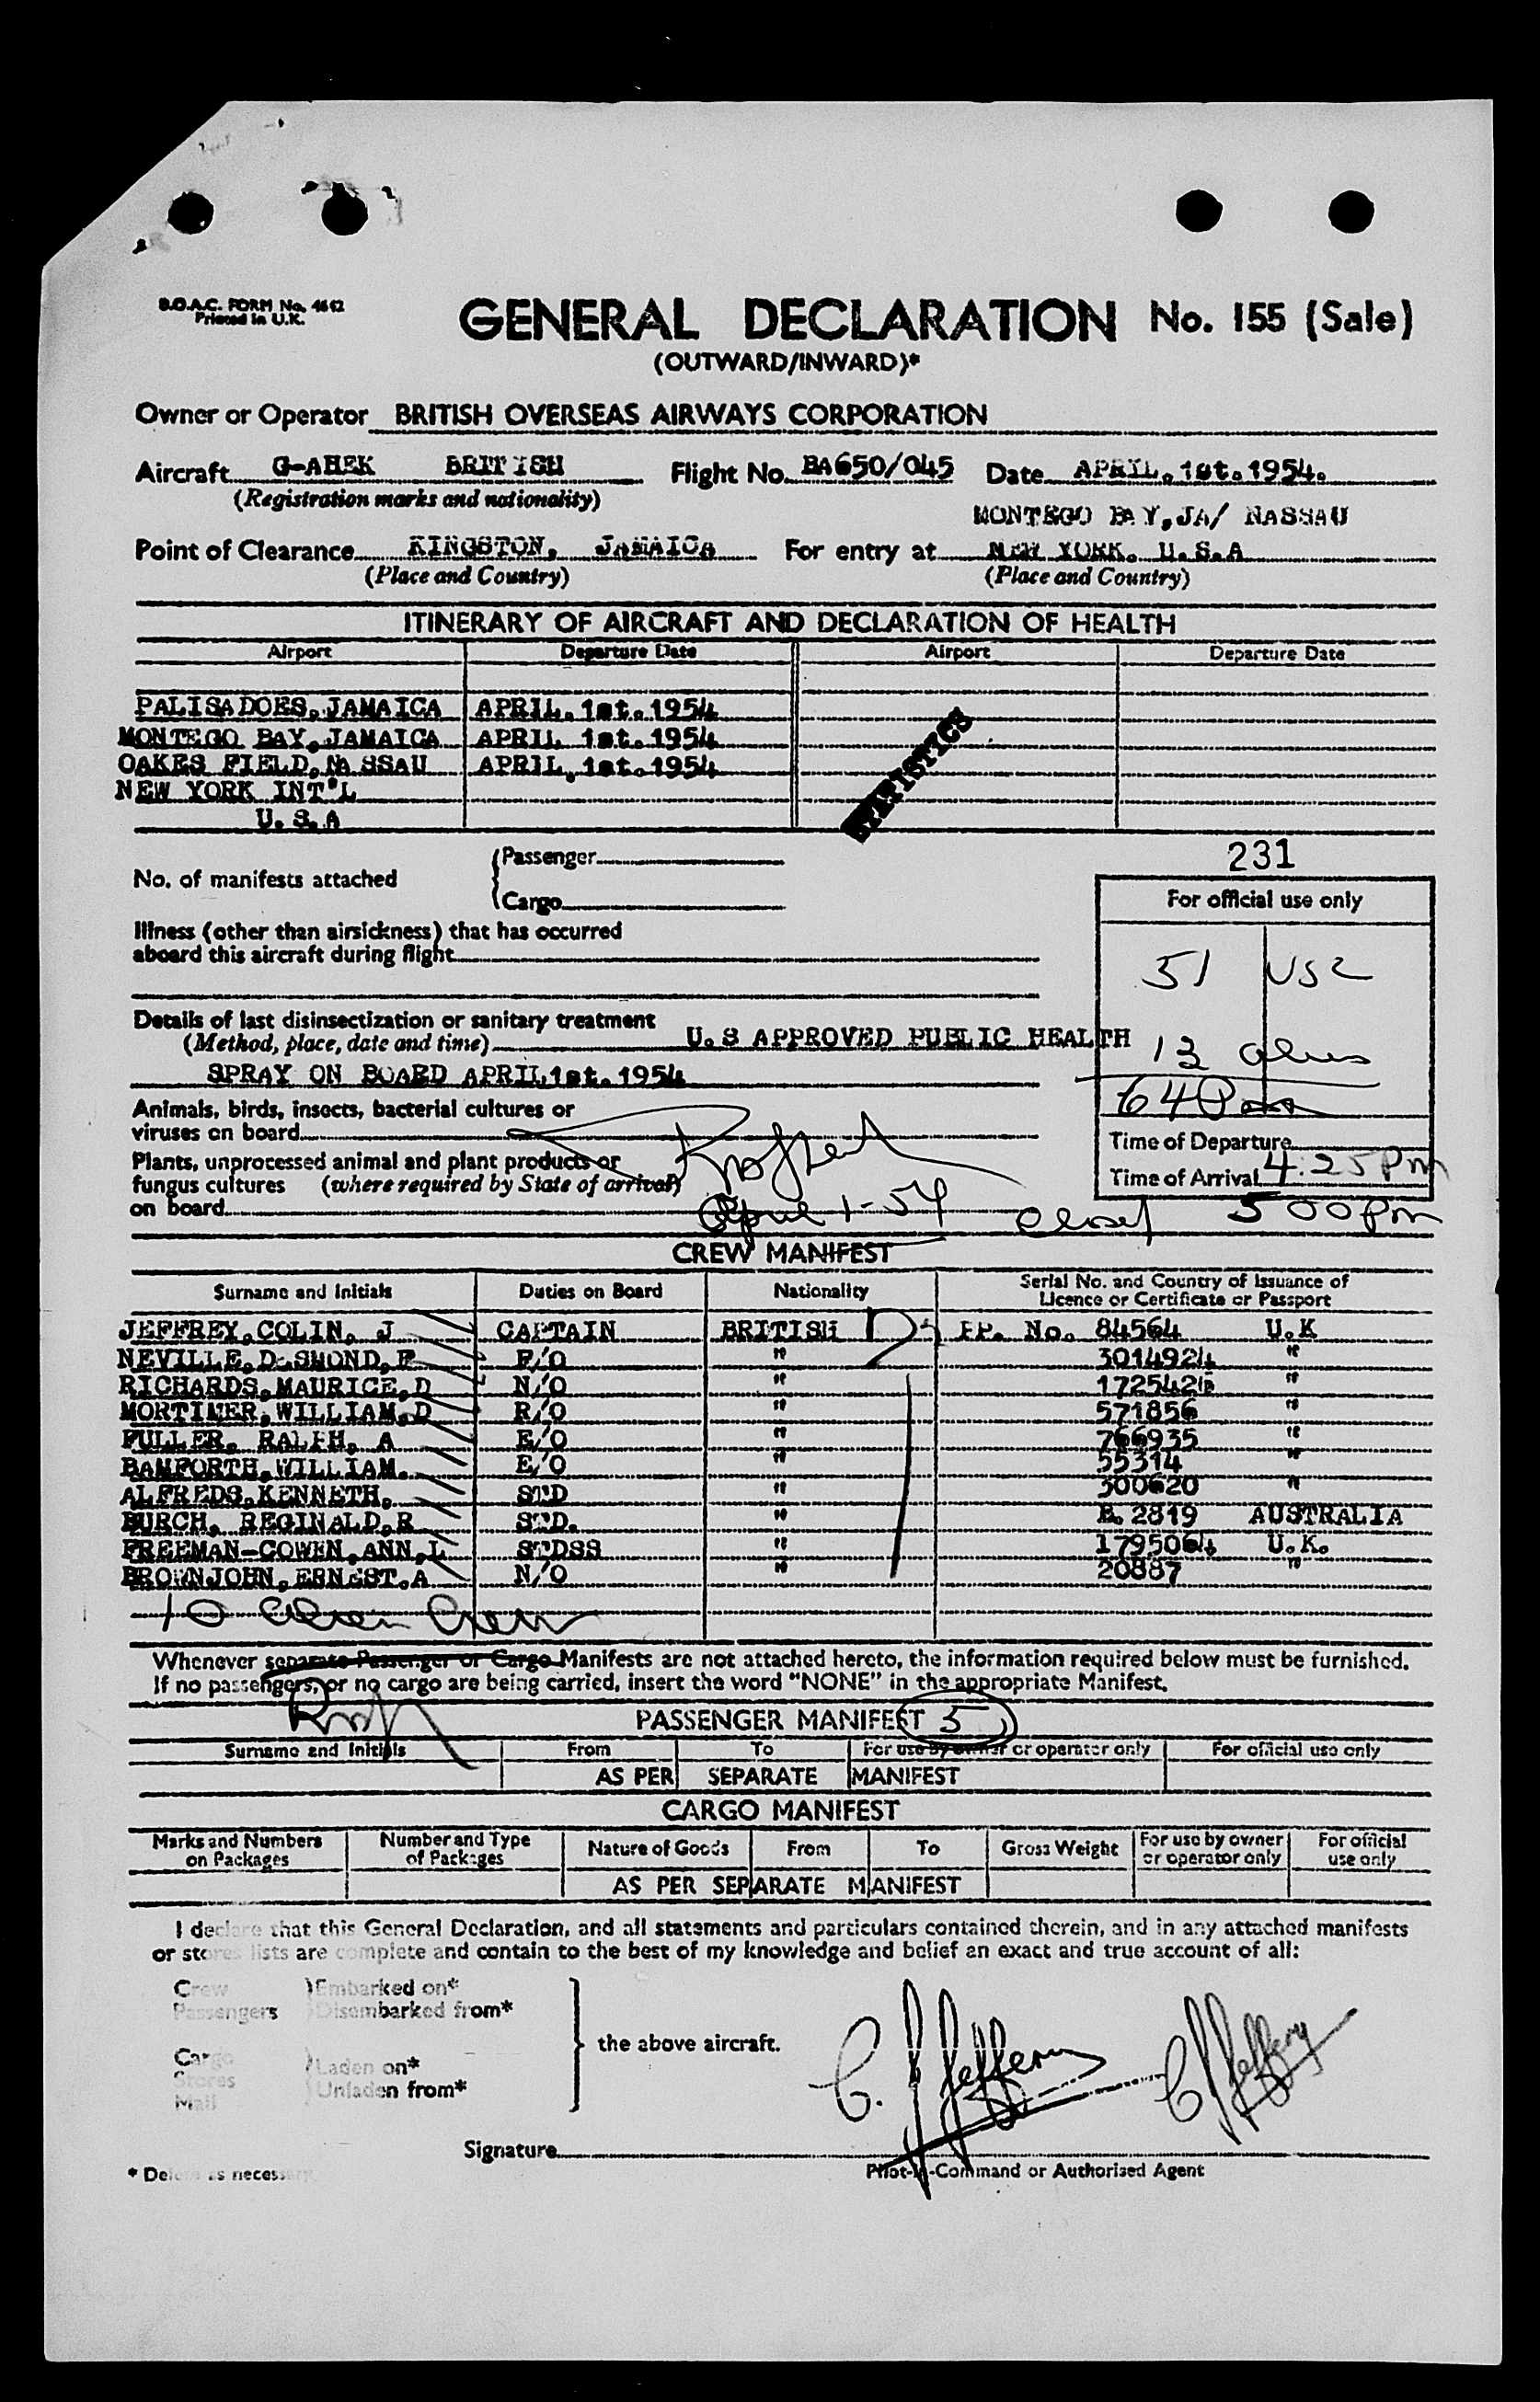 B.O.A.C. FORM No. 4642
Printed in U.K.
GENERAL DECLARATION No. 155 (Sale)
(OUTWARD/INWARD)*
Owner or Operator BRITISH OVERSEAS AIRWAYS CORPORATION
Aircraft G-AHEK BRITISH Flight No. BA650/045 Date APRIL. 1st. 1954.
(Registration marks and nationality)
MONTEGO BAY, JA/ NASSAU
Point of Clearance KINGSTON, JAMAICA For entry at NEW YORK. U.S.A
(Place and Country) (Place and Country)
ITINERARY OF AIRCRAFT AND DECLARATION OF HEALTH
Airport Departure Date Airport Departure Date
PALISADOES, JAMAICA APRIL. 1st. 1954
MONTEGO BAY, JAMAICA APRIL 1st. 1954
OAKES FIELD, NASSAU APRIL, 1st. 1954
NEW YORK INT'L
U.S.A
STATISTICS
231
No. of manifests attached
Passenger
Cargo
For official use only
Illness (other than airsickness) that has occurred
aboard this aircraft during flight
51 USC
Details of last disinsectization or sanitary treatment
(Method, place, date and time) U.S APPROVED PUBLIC HEALTH
13 aliens
SPRAY ON BOARD APRIL 1st. 1954
64 Pass
Animals, birds, insects, bacterial cultures or
viruses on board
Time of Departure
Plants, unprocessed animal and plant products or
fungus cultures (where required by State of arrival)
on board
Time of Arrival 4:25 pm
April 1-54 closed 500 pm
CREW MANIFEST
Surname and Initials Duties on Board Nationality Serial No. and Country of Issuance of
Licence or Certificate or Passport
JEFFREY, COLIN, J CAPTAIN BRITISH PP. No. 84564 U.K
NEVILLE, DESMOND, F F/O " 3014924 "
RICHARDS, MAURICE, D N/O " "
MORTIMER, WILLIAM, D R/O " 571856 "
FULLER, RALPH, A E/O " 766935 "
BAMFORTH, WILLIAM. E/O " 55314 "
ALFREDS, KENNETH, STD " 300620 "
BURCH, REGINALD, R STD. " B. 2819 AUSTRALIA
FREEMAN-COWEN, ANN, L STDSS " 1795064 U.K.
BROWNJOHN, ERNEST. A N/O " 20887 "
10 Alien Crew
Whenever separate Passenger or Cargo Manifests are not attached hereto, the information required below must be furnished.
If no passengers, or no cargo are being carried, insert the word "NONE" in the appropriate Manifest.
PASSENGER MANIFEST 5
Surname and Initials From To For use by owner or operator only For official use only
AS PER SEPARATE MANIFEST
CARGO MANIFEST
Marks and Numbers on Packages Number and Type of Packages Nature of Goods From To Gross Weight For use by owner or operator only For official use only
AS PER SEPARATE MANIFEST
I declare that this General Declaration, and all statements and particulars contained therein, and in any attached manifests
or stores lists are complete and contain to the best of my knowledge and belief an exact and true account of all:
Crew Embarked on*
Passengers Disembarked from*
the above aircraft.
Cargo Laden on*
Stores Unladen from*
Mail
C. J. Jeffery C J Jeffery
Signature
* Delete as necessary Pilot-in-Command or Authorised Agent